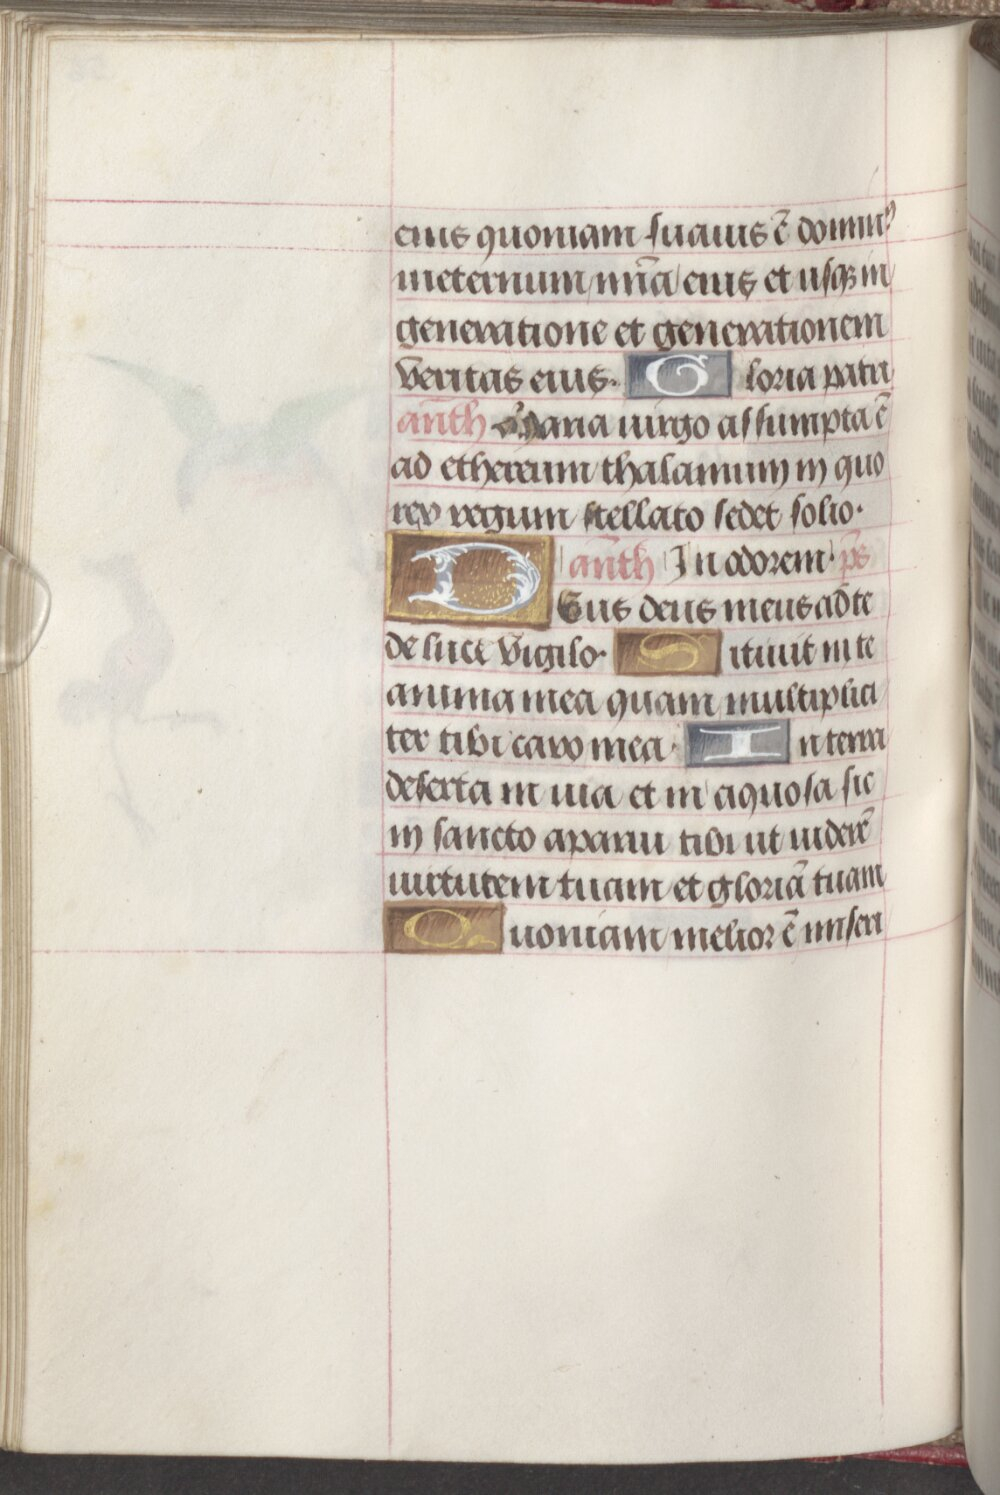 eius quoniam suauis ē domin⁹
ineternum mīa eius et usqꝫ in
generatione et generationem
v̄eritas eius. Gloria patri
anth̄ Maria uirgo assumpta ē
ad ethereum thalamum in quo
rex regum stellato sedet solio.
anth̄ In odorem. p̄s
DEus deus meus ad te
de luce vigilo. Sitiuit in te
anima mea quam multiplici
ter tibi caro mea. In terra
deserta in uia et in aquosa sic
in sancto aparui tibi ut uiderē
uirtutem tuam et gloriā tuam
Quoniam melior ē miseri